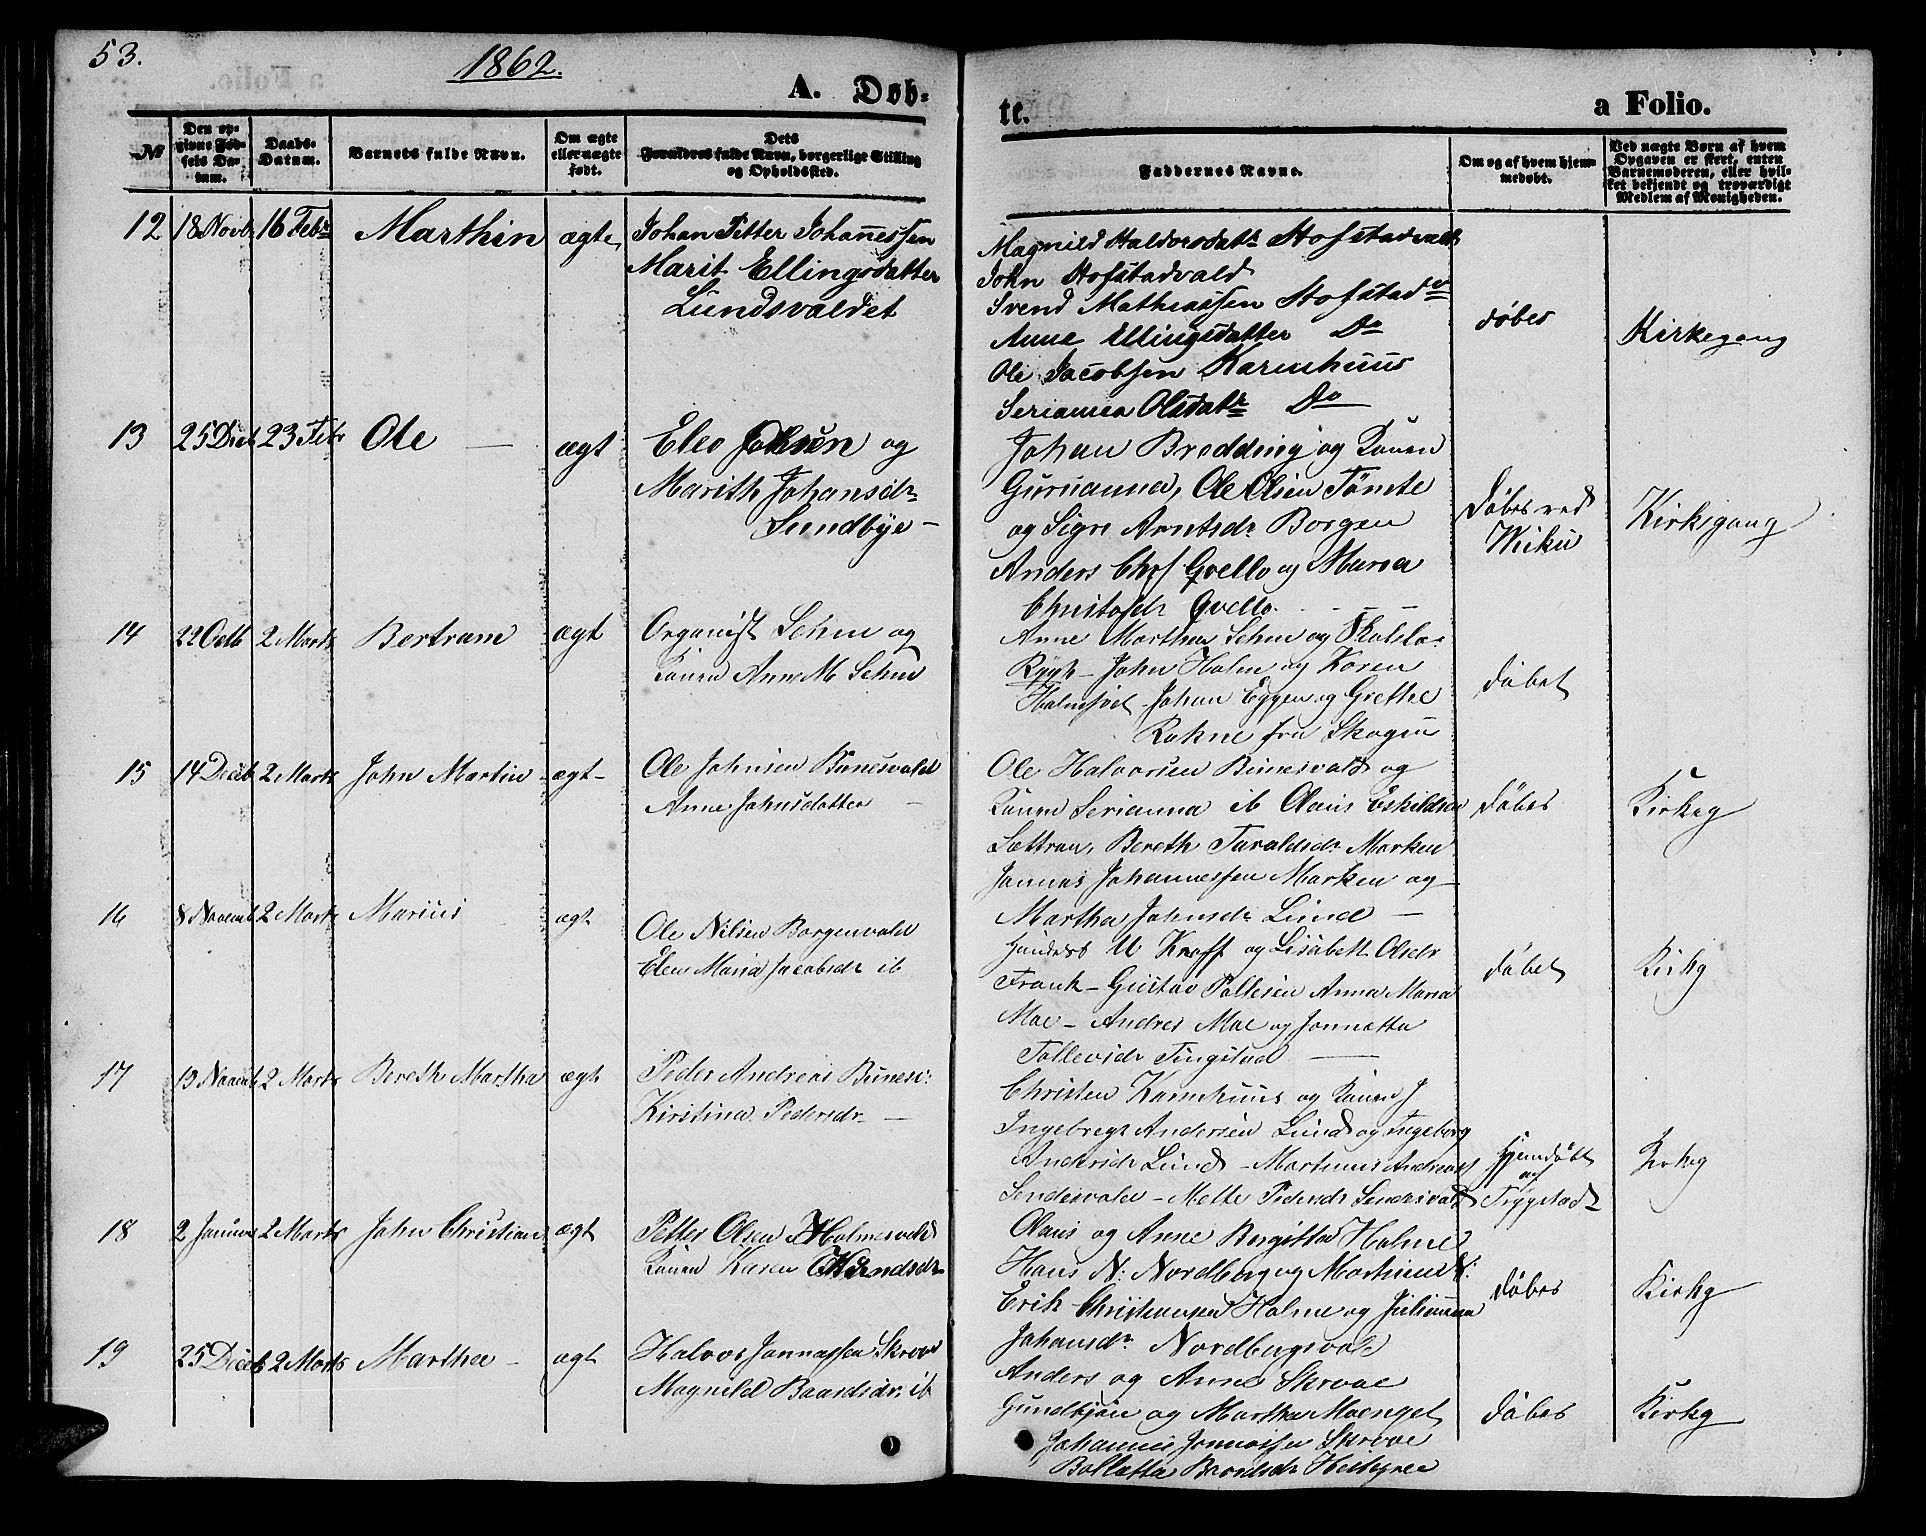 53.
1862.
A. Døb-
te.
a Folio.
№
Den op-
givne Fød-
sels Da-
tum.
Daabs-
Datum.
Barnets fulde Navn.
Om ægte
eller uægte
født.
Dets
Forældres fulde Navn, borgerlige Stilling
og Opholdssted.
Faddernes Navne.
Om og af hvem hjem-
medøbt.
Ved uægte Børn af hvem
Opgaven er skeet, enten
Barnemoderen, eller hvil-
ket bekjendt og troværdigt
Medlem af Menigheden.
12 18 Novb 16 Febr Marthin ægte Johan Petter Johannessen
Marit Ellingsdatter
Lundsvaldet
Magnild Haldorsdatr Hofstadvald
John Hofstadvald
Svend Mathiassen Hofstad
Anne Ellingsdatter Do
Ole Jacobsen Karmhuus
Serianna Olsdatr Do
døbes
Kirkegang
13 25 Decb 23 Febr Ole ægt Eleo Johnsen og
Marith Johansdr
Sundbye
Johan Bredding og Konen
Guruanna, Ole Olsen Tømte
og Signe Arntsdr Borgen
Anders Chrf Qvello og Maria
Christofdr Qvello
Døbes ved
Kirkegang
14 22 Octb 2 Marts Bertram ægt Organist Sehm og
Konen Anne M Sehm
Anne Martha Sehm og
Rygh - John Holm og Karen
Johan Eggen og Grethe
Rohne fra Skogn
døbet
15 14 Decb 2 Marts John Martin ægt Ole Johnsen Bunesvald
Anne Johnsdatter
Ole Halvorsen Bunesvald og
Konen Serianna ib Olaus Eskildsen
Sættran, Bereth Taraldsdr Marken
Jonnas Johannessen Marken og
Martha Johnsdr Lund
døbes
Kirkeg
16 8 Novemb 2 Marts Marius ægt
Ole Nilsen Borgenvald
Elen Maria Jacobsdr ib
M Kraft og Lisabeth Olsdr
Frank - Gustav Pallesen Anna Maria
Moe - Andres Moe og Jonnetta
Tollevsdr Tingstad
døbet
Kirkg
17 13 Novemb 2 Marts Bereth Martha ægt Peder Andreas Bunesv:
Kirstina Pedersdr
Christen Karmhuus og Konen
Ingebregt Andersen Lund og Ingeborg
Andersdr Lund - Martinus Andreas
Sendesvald - Mette Pedersdr Sendesvald
Hjemdøbt
af
Trygstad
Kirkeg
18 2 Januar 2 Marts John Christian ægt Petter Olsen Holmesvald
Konen Karen
Olaus og Anne Bergitta Holme
Hans N: Nordberg og Martinus N:
Erik Christiansen Holme og Julianna
Johansdr Nordbergsvald
døbes
Kirkg
19 25 Decb 2 Marts Marthea ægt Halvor Jonnassen Skrove
Magnild Baardsdr ib
Anders og Anne Skrove
Gundbjør og Martha Moenget
Johannes Jonnassen Skrove
Bollatta
døbes
Kirkg